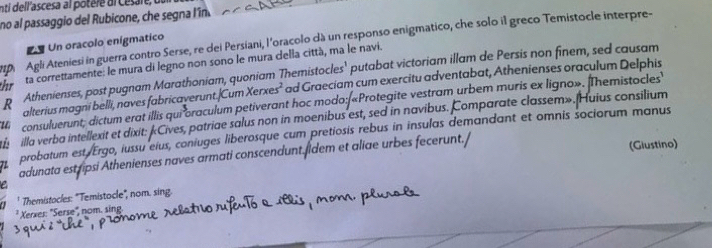 nti dell'ascesa al potere di Cesare,
no al passaggio del Rubicone, che segna l'in
Un oracolo enigmatico
Agli Ateniesi in guerra contro Serse, re dei Persiani, l'oracolo dà un responso enigmatico, che solo il greco Temistocle interpre-
ta correttamente: le mura di legno non sono le mura della città, ma le navi.
Athenienses, post pugnam Marathoniam, quoniam Themistocles¹ putabat victoriam illam de Persis non finem, sed causam
alterius magni belli, naves fabricaverunt./Cum Xerxes² ad Graeciam cum exercitu adventabat, Athenienses oraculum Delphis
consuluerunt; dictum erat illis qui³ oraculum petiverant hoc modo:/«Protegite vestram urbem muris ex ligno»./Themistocles¹
illa verba intellexit et dixit:/«Cives, patriae salus non in moenibus est, sed in navibus./Comparate classem»./Huius consilium
probatum est/Ergo, iussu eius, coniuges liberosque cum pretiosis rebus in insulas demandant et omnis sociorum manus
adunata est/ipsi Athenienses naves armati conscendunt./Idem et aliae urbes fecerunt./
(Giustino)
¹ Themistocles: "Temistocle", nom. sing.
² Xerxes: "Serse", nom. sing.
3 qui = "che", pronome relativo riferito a illis, nom. plurale